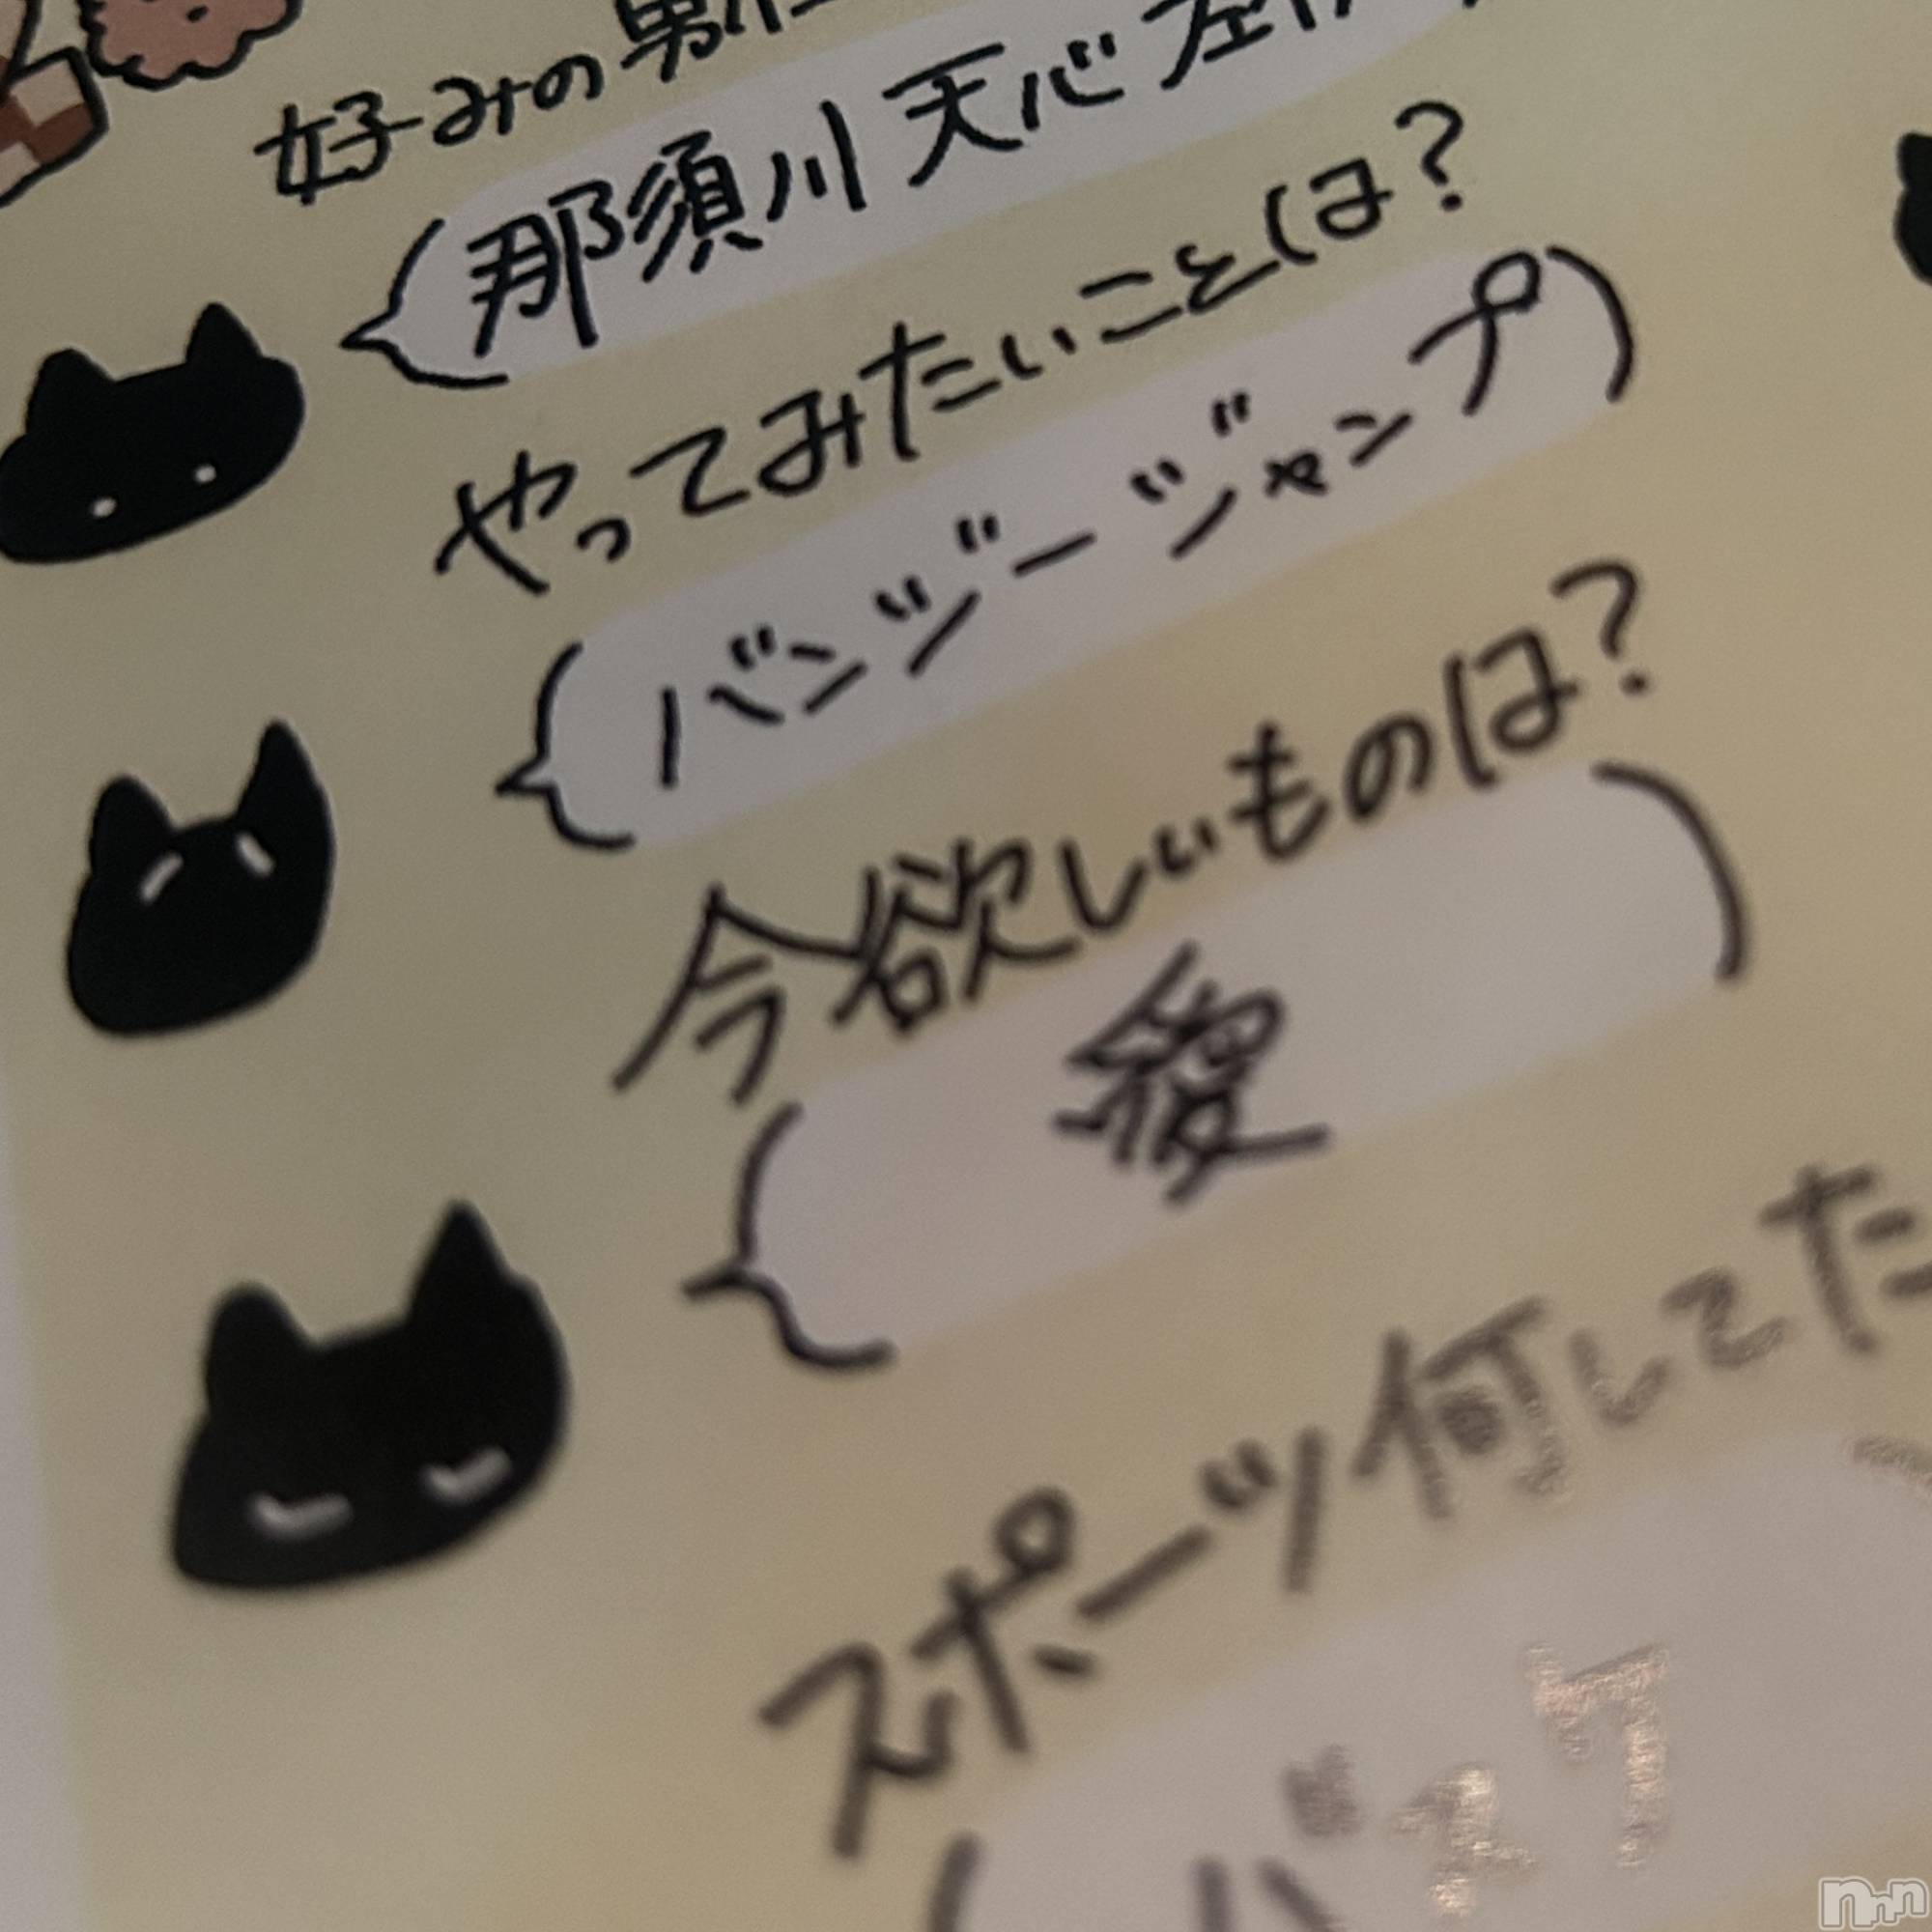 好みの男
那須川天心
やってみたいことは?
バンジージャンプ
今欲しいものは?
スポーツ何してた
バスケ